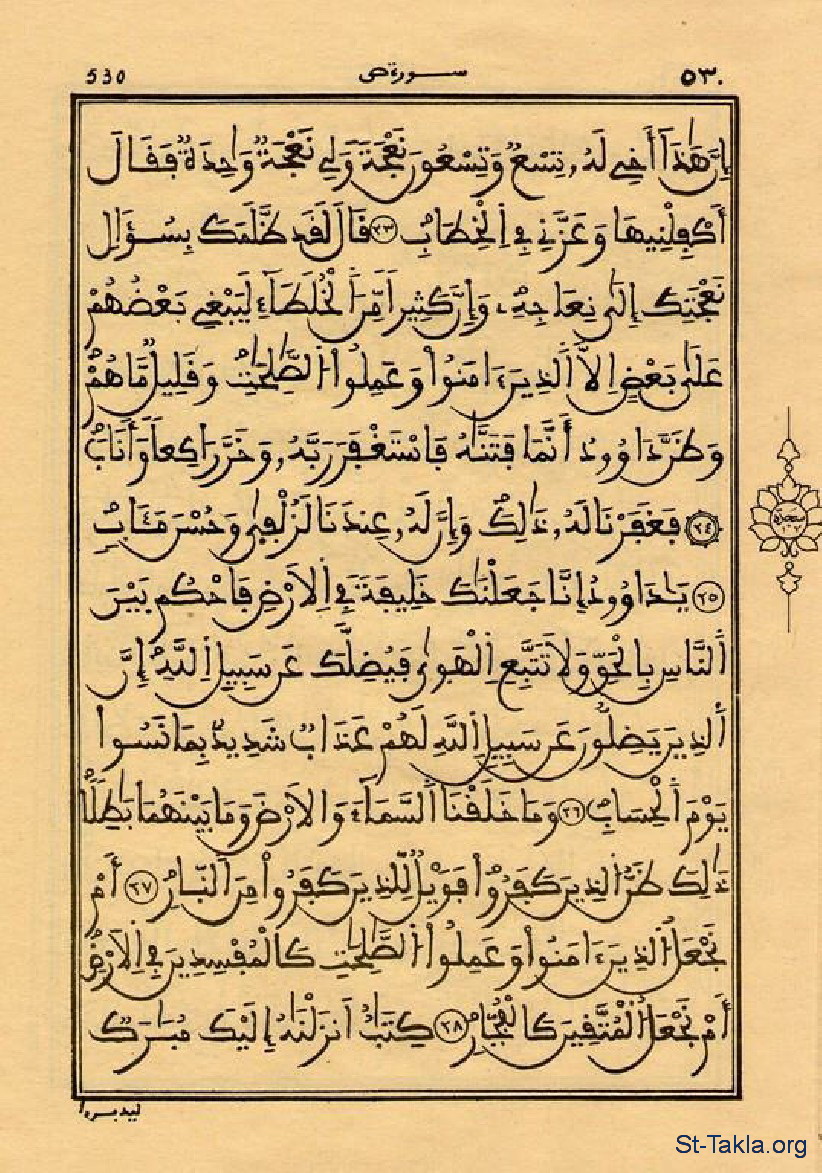 530 سورة ص ٥٣٠
إِنَّ هَٰذَآ أَخِے لَهُۥ تِسْعٞ وَتِسْعُونَ نَعْجَةٗ وَلِے نَعْجَةٞ وَٰحِدَةٞ فَقَالَ
أَكْفِلْنِيهَا وَعَزَّنِے فِے اِ۬لْخِطَابِۖ ٢٣ قَالَ لَقَد ظَّلَمَكَ بِسُؤَالِ
نَعْجَتِكَ إِلَىٰ نِعَاجِهِۦ وَإِنَّ كَثِيراٗ مِّنَ اَ۬لْخُلَطَآءِ لَيَبْغِے بَعْضُهُمْ
عَلَىٰ بَعْضٍ اِلَّا اَ۬لذِينَ ءَامَنُواْ وَعَمِلُواْ اُ۬لصَّٰلِحَٰتِ وَقَلِيلٞ مَّا هُمْ
وَظَنَّ دَاوُۥدُ أَنَّمَا فَتَنَّٰهُ فَاسْتَغْفَرَ رَبَّهُۥ وَخَرَّ رَاكِعاٗ وَأَنَابَ
٢٤ فَغَفَرْنَا لَهُۥ ذَٰلِكَ وَإِنَّ لَهُۥ عِندَنَا لَزُلْفَىٰ وَحُسْنَ مَـَٔابٖ
٢٥ يَٰدَاوُۥدُ إِنَّا جَعَلْنَٰكَ خَلِيفَةٗ فِے اِ۬لَارْضِ فَاحْكُم بَيْنَ
اَ۬لنَّاسِ بِالْحَقِّ وَلَا تَتَّبِعِ اِ۬لْهَوَىٰ فَيُضِلَّكَ عَن سَبِيلِ اِ۬للَّهِ إِنَّ
اَ۬لذِينَ يَضِلُّونَ عَن سَبِيلِ اِ۬للَّهِ لَهُمْ عَذَابٞ شَدِيدُۢ بِمَا نَسُواْ
يَوْمَ اَ۬لْحِسَابِ ٢٦ وَمَا خَلَقْنَا اَ۬لسَّمَآءَ وَالَارْضَ وَمَا بَيْنَهُمَا بَٰطِلاٗ
ذَٰلِكَ ظَنُّ اُ۬لذِينَ كَفَرُواْ فَوَيْلٞ لِّلذِينَ كَفَرُواْ مِنَ اَ۬لنّ۪ارِ ٢٧ أَمْ
نَجْعَلُ اُ۬لذِينَ ءَامَنُواْ وَعَمِلُواْ اُ۬لصَّٰلِحَٰتِ كَالْمُفْسِدِينَ فِے اِ۬لَارْضِ
أَمْ نَجْعَلُ اُ۬لْمُتَّقِينَ كَالْفُجّ۪ارِ ٢٨ كِتَٰبٌ اَنزَلْنَٰهُ إِلَيْكَ مُبَٰرَكٞ
ليدبروا
St-Takla.org